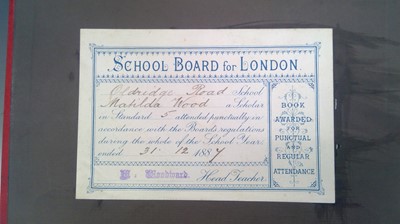 SCHOOL BOARD for LONDON.
Oldridge Road School
Matilda Wood a Scholar
in Standard 5 attended punctually in
accordance with the Boards regulations
during the whole of the School Year
ended 31. 12 1887
Woodward. Head Teacher.
BOOK
AWARDED
FOR
PUNCTUAL
AND
REGULAR
ATTENDANCE